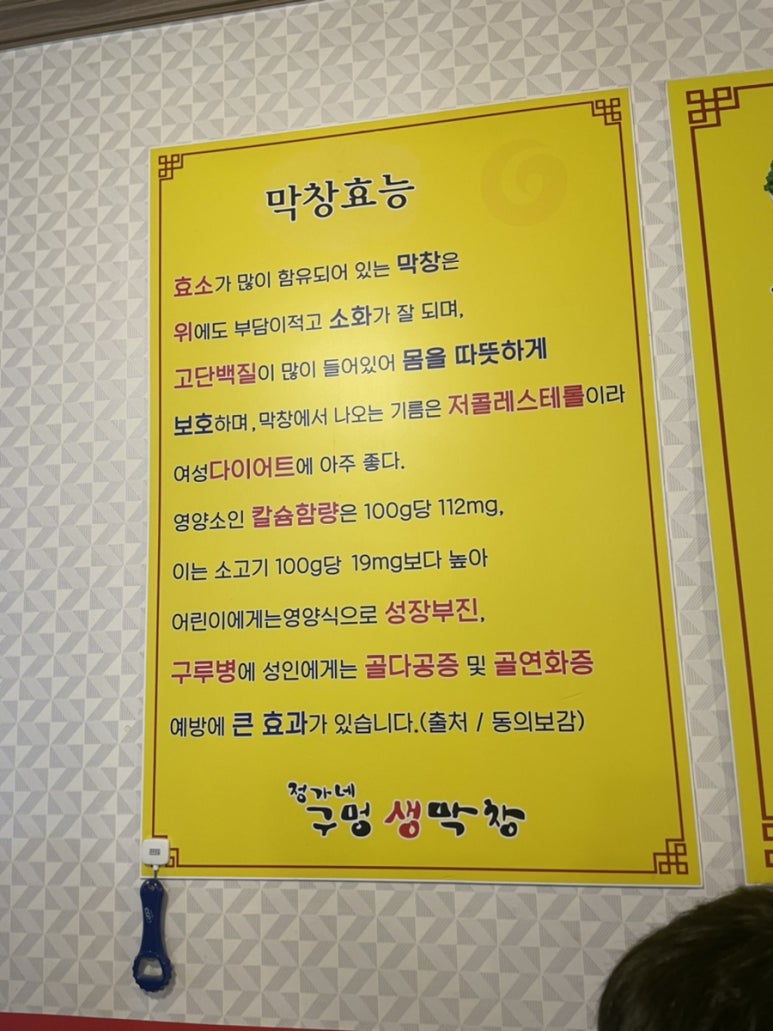 막창효능
효소가 많이 함유되어 있는 막창은
위에도 부담이적고 소화가 잘 되며,
고단백질이 많이 들어있어 몸을 따뜻하게
보호하며,막창에서 나오는 기름은 저콜레스테롤이라
여성다이어트에 아주 좋다.
영양소인 칼슘함량은 100g당 112mg,
이는 소고기 100g당 19mg보다 높아
어린이에게는영양식으로 성장부진,
구루병에 성인에게는 골다공증 및 골연화증
예방에 큰 효과가 있습니다.(출처 / 동의보감)
정가네
구멍 생막창